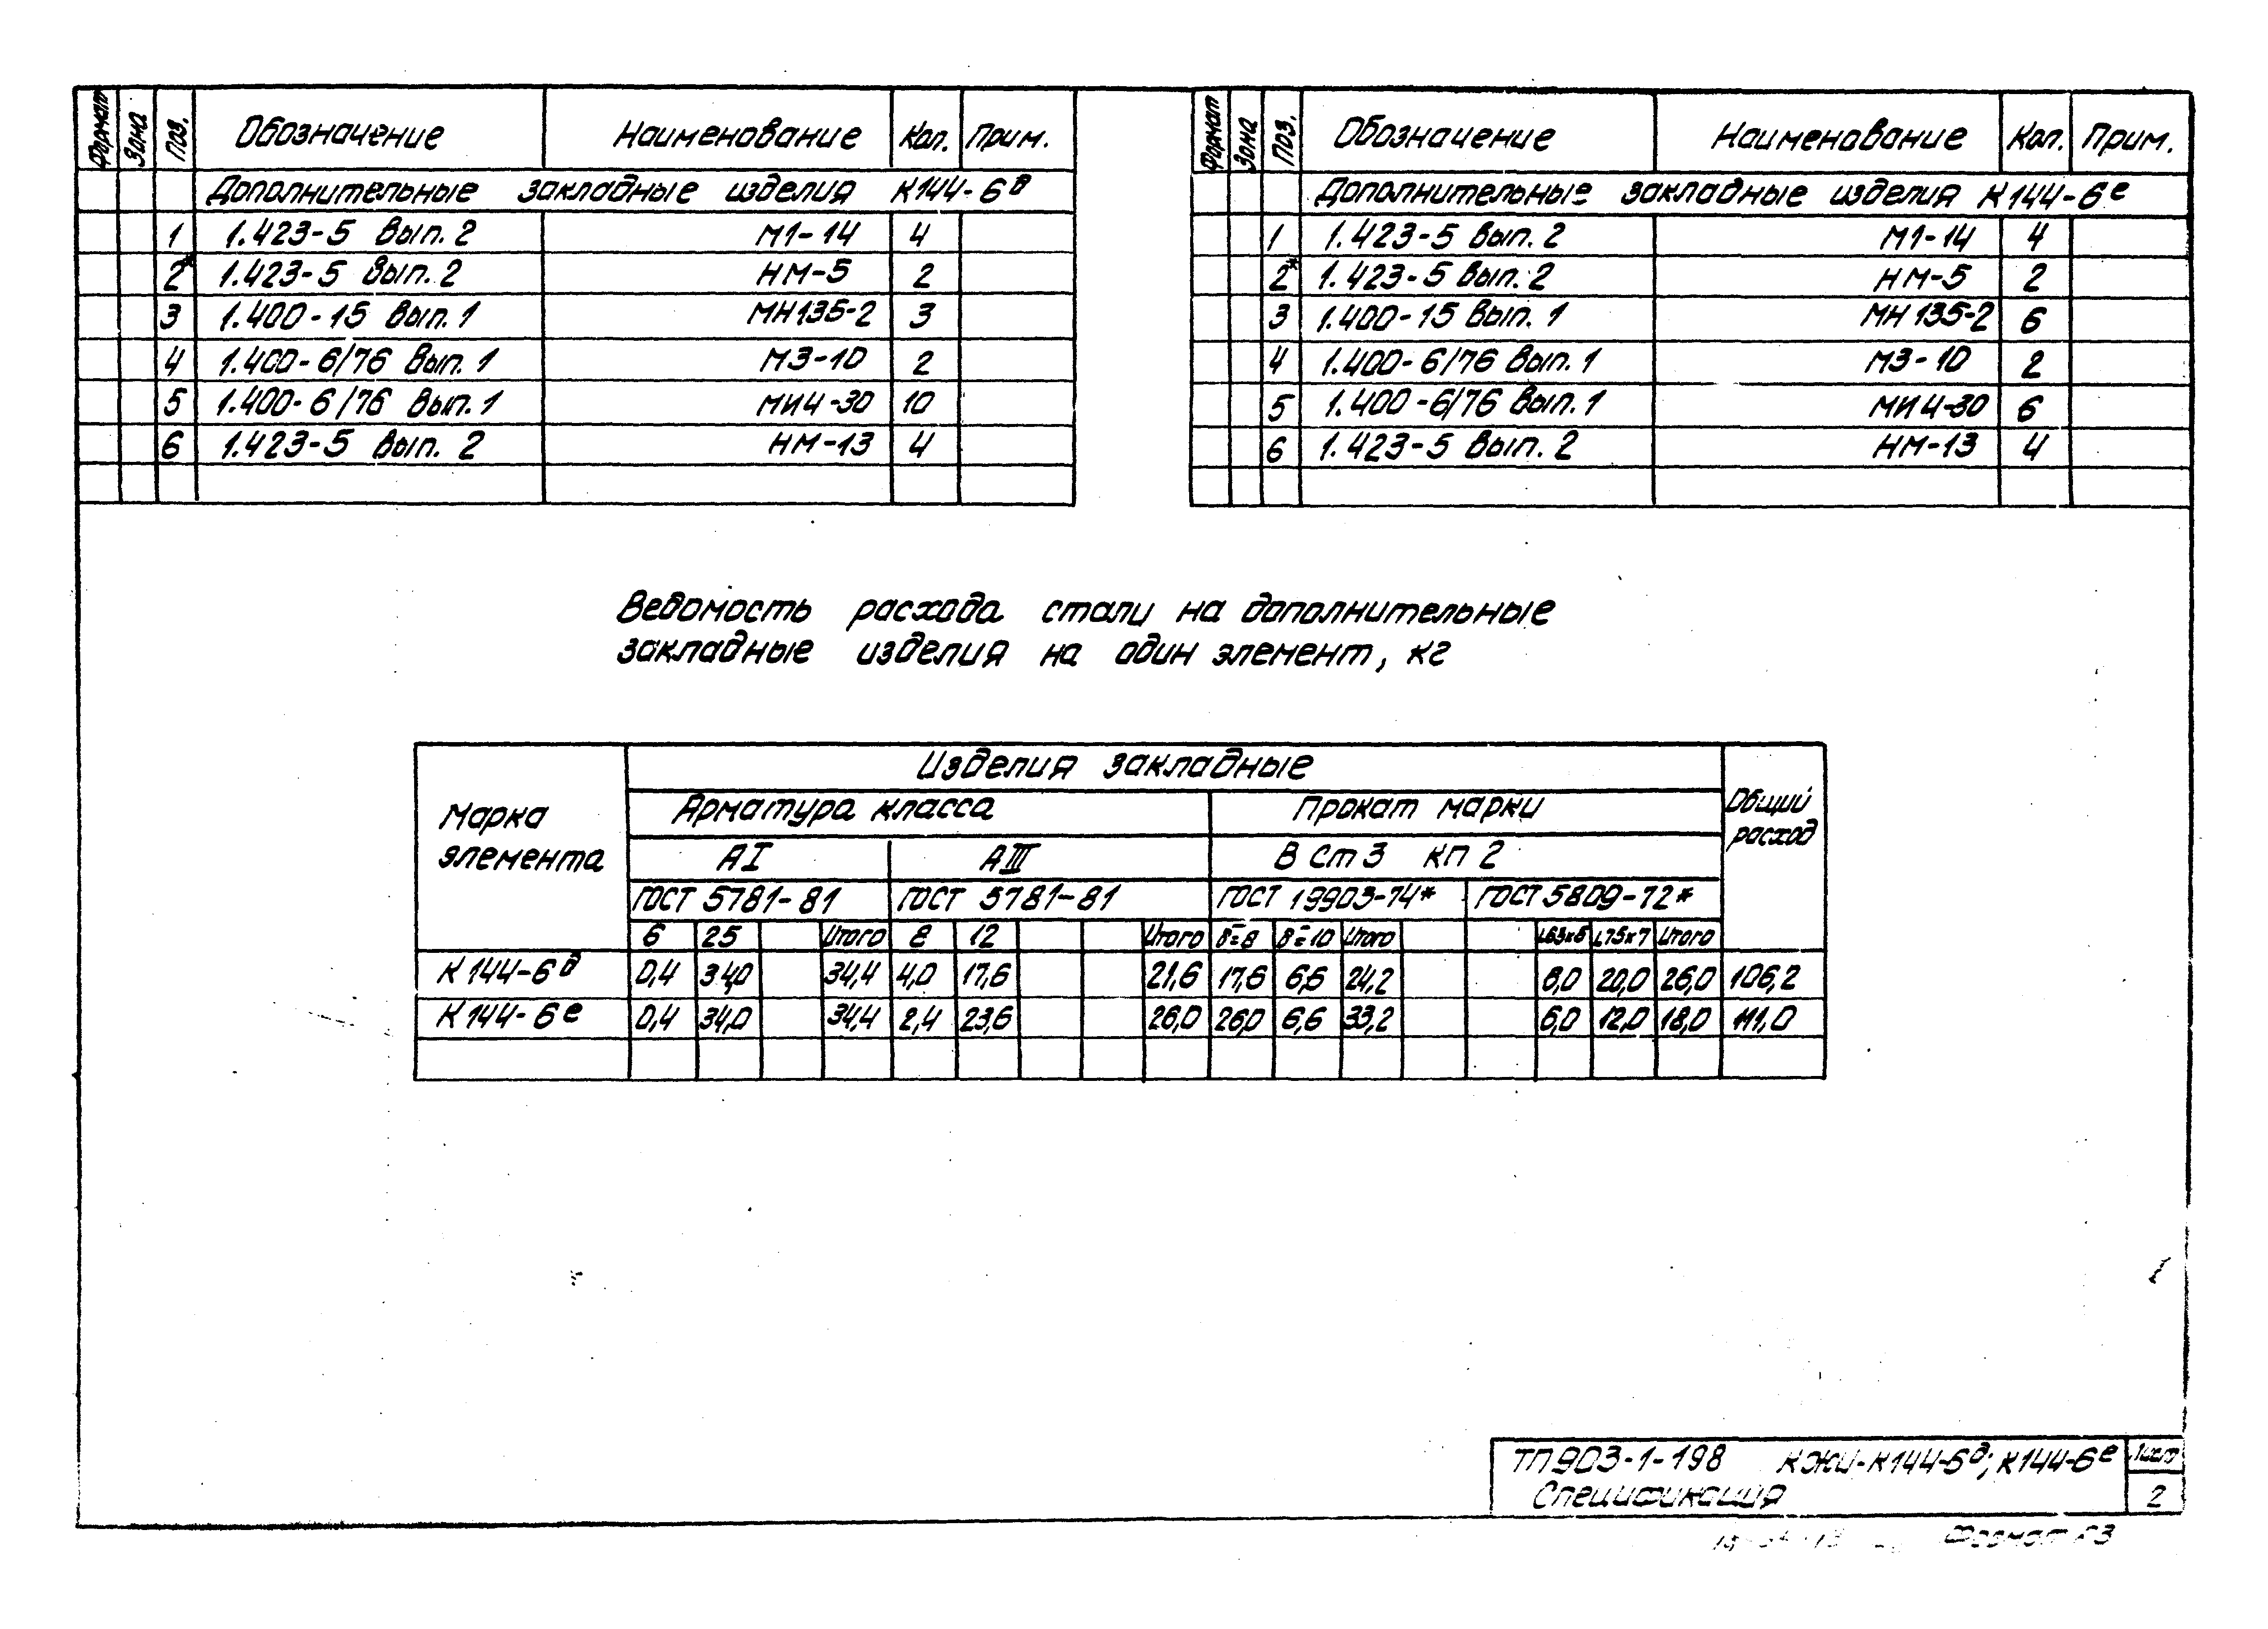 Формат Зона Поз. Обозначение Наименование Кол. Прим.
Дополнительные закладные изделия К144-6д
1 1.423-5 Вып. 2 М1-14 4
2* 1.423-5 Вып. 2 НМ-5 2
3 1.400-15 Вып. 1 МН135-2 3
4 1.400-6/76 Вып. 1 М3-10 2
5 1.400-6/76 Вып. 1 МИ4-30 10
6 1.423-5 Вып. 2 НМ-13 4
Формат Зона Поз. Обозначение Наименование Кол. Прим.
Дополнительные закладные изделия К144-6е
1 1.423-5 Вып. 2 М1-14 4
2* 1.423-5 Вып. 2 НМ-5 2
3 1.400-15 Вып. 1 МН135-2 6
4 1.400-6/76 Вып. 1 М3-10 2
5 1.400-6/76 Вып. 1 МИ4-30 6
6 1.423-5 Вып. 2 НМ-13 4
Ведомость расхода стали на дополнительные
закладные изделия на один элемент, кг
Марка элемента Изделия закладные Общий расход
Арматура класса Прокат марки
АI АIII ВСт3 кп2
ГОСТ 5781-81 ГОСТ 5781-81 ГОСТ 19903-74* ГОСТ 5809-72*
6 25 Итого 8 12 Итого δ=8 δ=10 Итого L75x7 Итого
К144-6д 0,4 34,0 34,4 4,0 17,6 21,6 17,6 6,6 24,2 20,0 26,0 106,2
К144-6е 0,4 34,0 34,4 2,4 23,6 26,0 26,0 6,6 33,2 6,0 12,0 18,0 111,0
ТП 903-1-198 КЖИ-К144-6д; К144-6е Лист
Спецификация 2
Формат